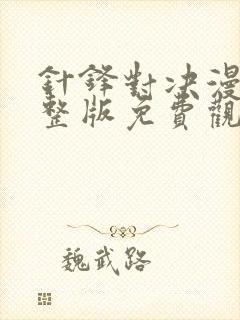 針鋒對決漫
整版免費觀
魏武路